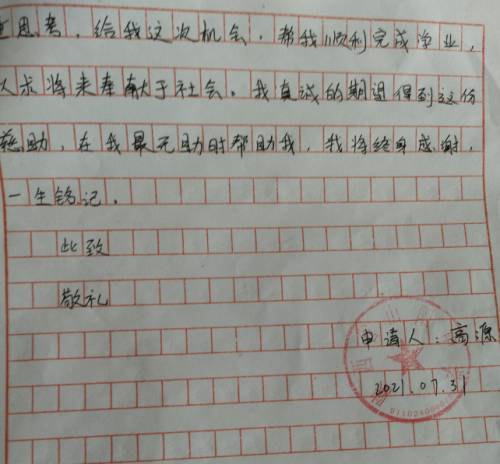 思考，给我这次机会，帮我顺利完成学业，
以求将来奉献于社会。我真诚的期望得到这份
慈助，在我最无助时帮助我，我将终身感谢，
一生铭记。
此致
敬礼
申请人：高源
2021.07.31